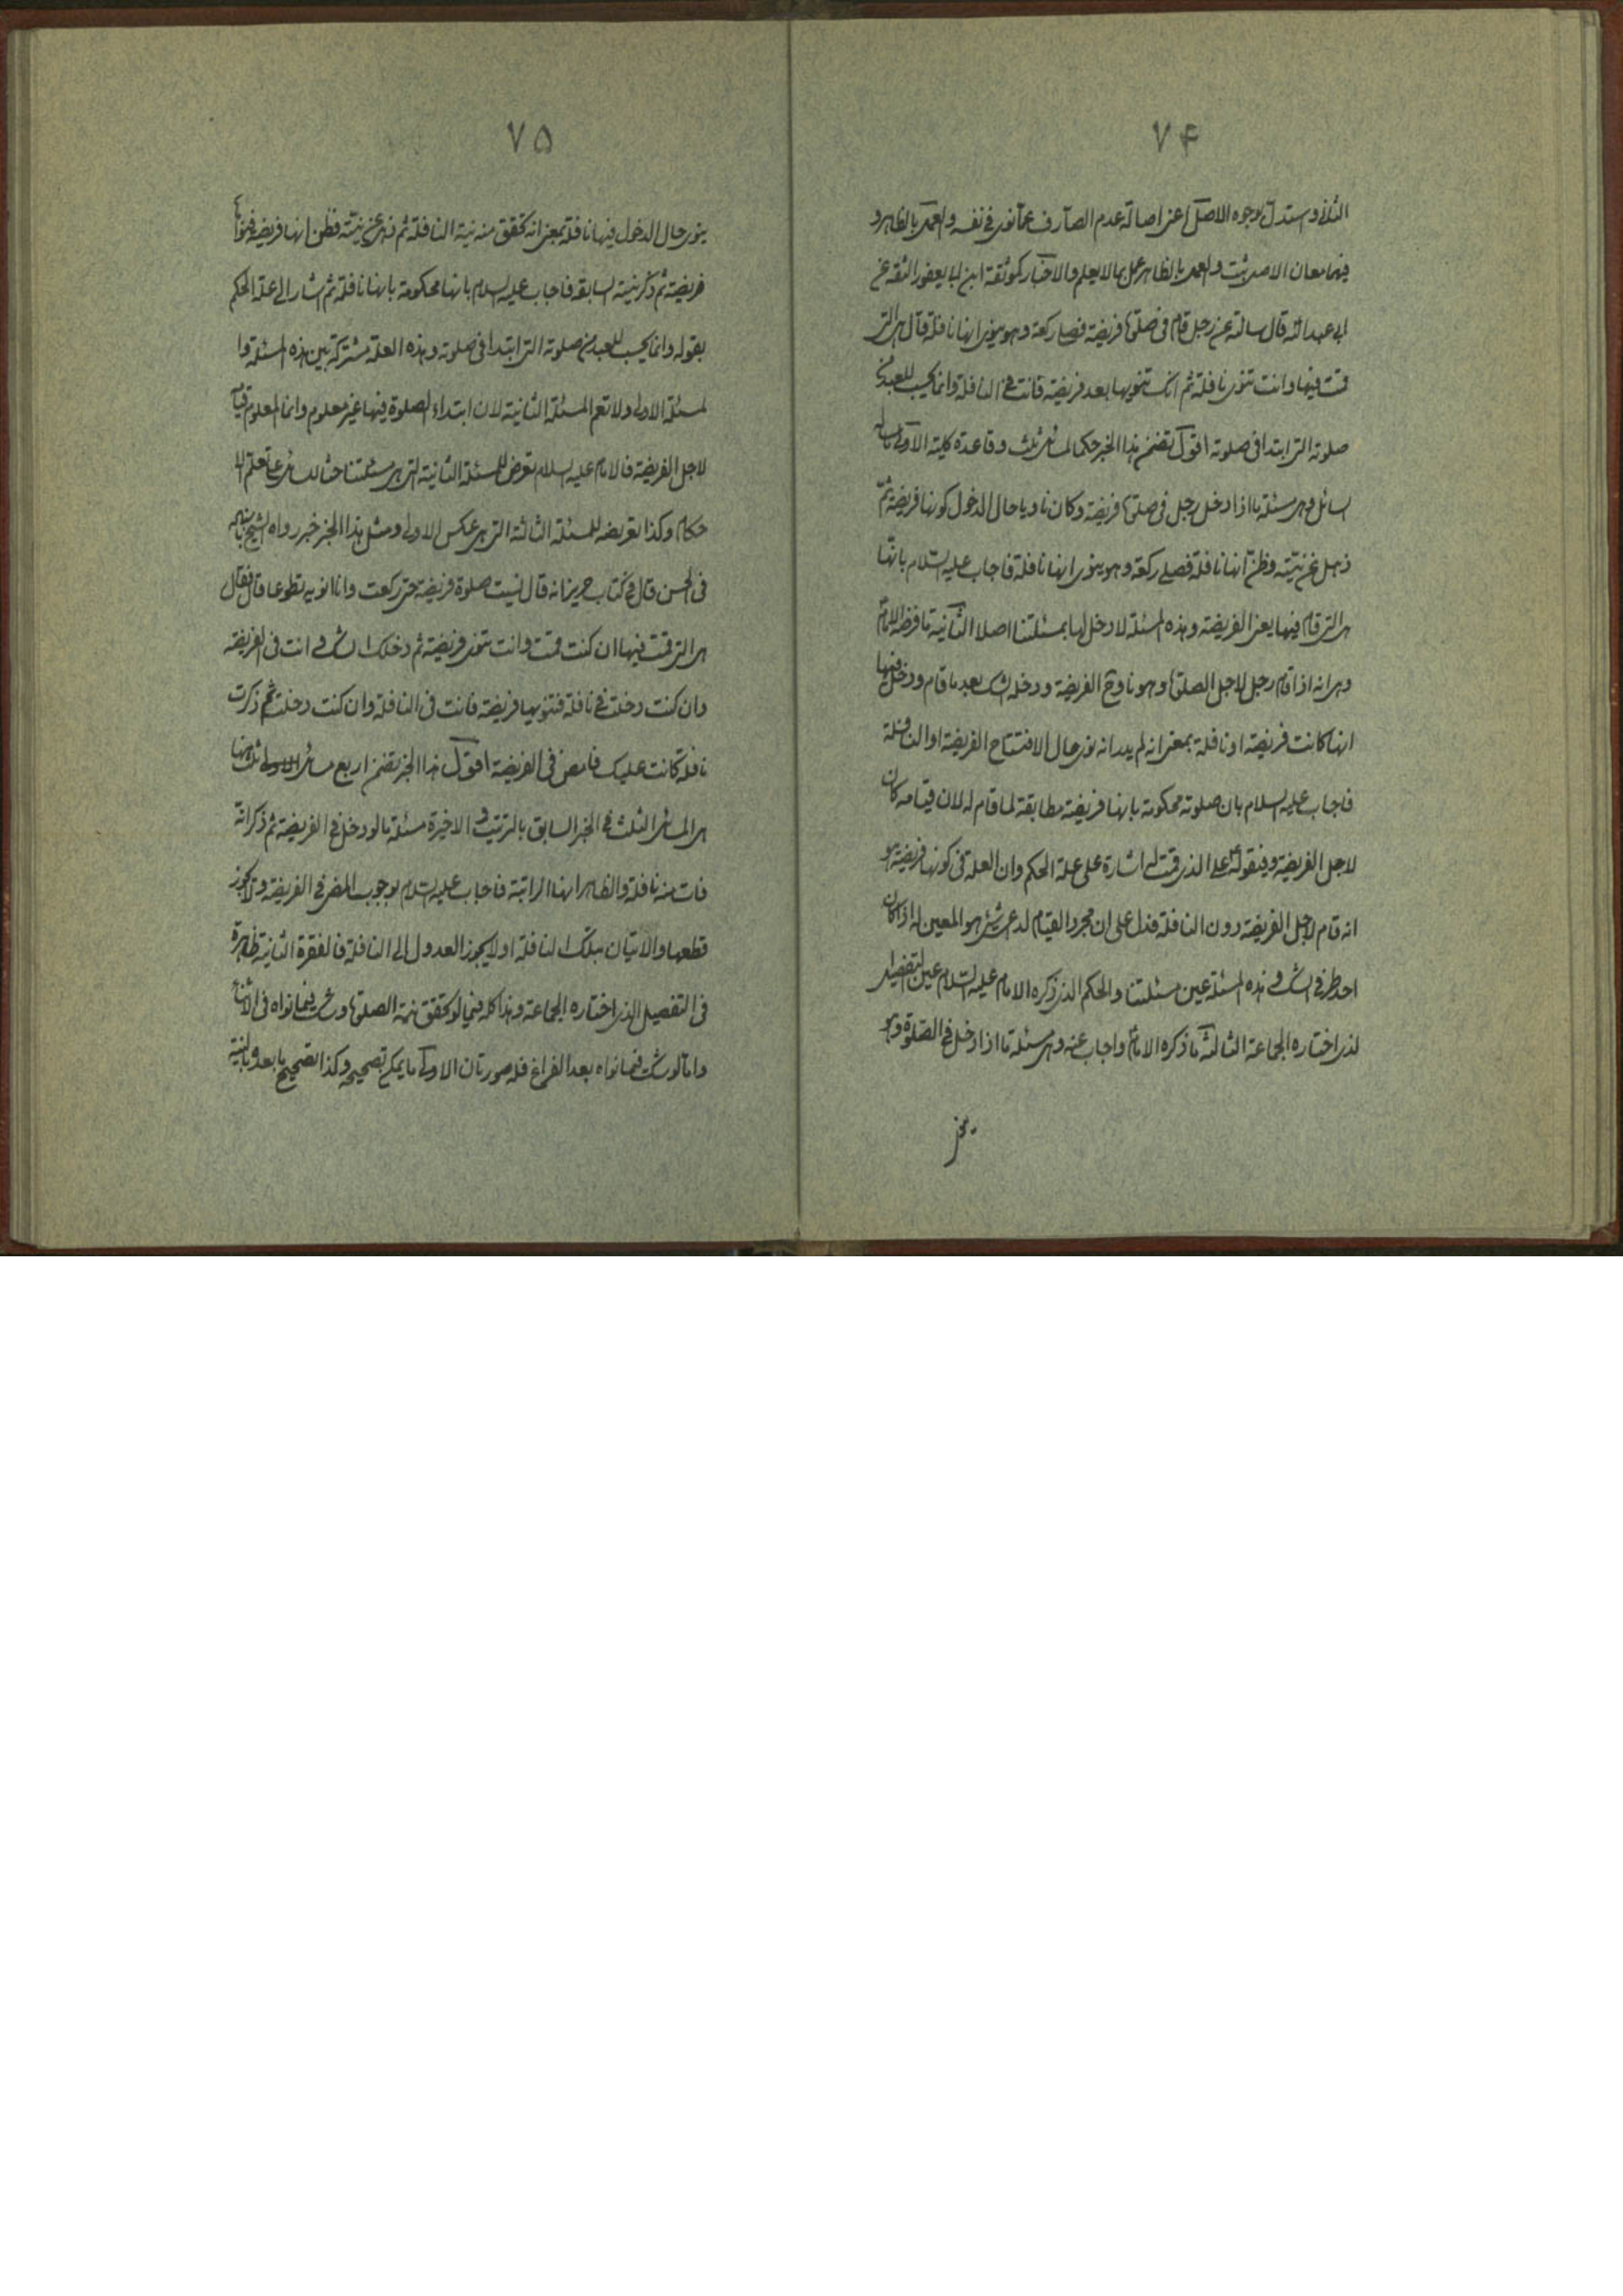 ۷۴
الثلاث و استدل بوجوه الاصل اعنی اصالة عدم الصارف عما نوی فی نفسه و العمل بالظاهر و
فیهما معا ان الاصل مثبت و العمل بالظاهر عمل بما لا یعلم و الاخبار کموثقة ابن ابی یعفور الثقة عن
ابی عبد الله قال سالته عن رجل قام فی صلوة فریضة فصلی رکعة و هو ینوی انها نافلة قال هی التی
قمت فیها و انت تنوی نافلة ثم انک تنویها بعد فریضة فانت فی النافلة و انما یحسب للعبد من
صلوته التی ابتدا فی صلوته اقول تضمن هذا الخبر حکما لمسائل ثلث و قاعدة کلیة الاولی ما ساله
السائل و هی مسئلة ما اذا دخل رجل فی صلوة فریضة و کان ناویا حال الدخول کونها فریضة ثم
ذهل عن نیته و ظن انها نافلة فصلی رکعة و هو ینوی انها نافلة فاجاب علیه السلام بانها
هی التی قام فیها یعنی الفریضة و هذه المسئلة لا دخل لها بمسئلتنا اصلا الثانیة ما فرضه الامام
و هی انه اذا قام رجل لاجل الصلوة و هو ناوی الفریضة و دخله الشک بعد ما قام و دخل فیها
انها کانت فریضة او نافلة بمعنی انه لم یدر انه نوی حال الافتتاح الفریضة او النافلة
فاجاب علیه السلام بان صلوته محکومة بانها فریضة مطابقة لما قام له لان قیامه کان
لاجل الفریضة و بقوله علی الذی قمت له اشارة علی علة الحکم و ان العلة فی کونها فریضة هو
انه قام لاجل الفریضة دون النافلة فدل علی ان مجرد القیام لدعی شیئ هو المعین له اذا کان
احد طرفی الشک و هذه المسئلة عین مسئلتنا و الحکم الذی ذکره الامام علیه السلام عین التفصیل
لذی اختاره الجماعة الثالثة ما ذکره الامام و اجاب عنه و هی مسئلة ما اذا دخل فی الصلوة و هو
۷۵
ینوی حال الدخول فیها نافلة بمعنی انه تحقق منه نیة النافلة ثم ذهل عن نیته فظن انها فریضة فنواها
فریضة ثم ذکر نیته السابقة فاجاب علیه السلام بانها محکومة بانها نافلة ثم اشار الی علة الحکم
بقوله و انما یحسب للعبد من صلوته التی ابتدا فی صلوته و هذه العلة مشترکة بین هذه المسئلة و ا
لمسئلة الاولی و لا تعم المسئلة الثانیة لان ابتداء الصلوة فیها غیر معلوم و انما المعلوم قیامه
لاجل الفریضة فالامام علیه السلام تعرض للمسئلة الثانیة التی هی مسئلتنا حثا للسائل علی تعلم الا
حکام و کذا تعرضه للمسئلة الثالثة التی هی عکس الاولی و مثل هذا الخبر خبر رواه الشیخ باسناده
فی الحسن قال فی کتاب حریز انه قال نسیت صلوة فریضة حتی رکعت و انا انویه تطوعا قال فقال
هی التی قمت فیها ان کنت قمت و انت تنوی فریضة ثم دخلک الشک فانت فی الفریضة
و ان کنت دخلت فی نافلة فتنویها فریضة فانت فی النافلة و ان کنت دخلت فی ثم ذکرت
نافلة کانت علیک فامض فی الفریضة اقول هذا الخبر تضمن اربع مسائل ثلثة منها
هی المسائل الثلث فی الخبر السابق بالترتیب و الاخیرة مسئلة ما لو دخل فی الفریضة ثم ذکر انه
فات منه نافلة و الظاهر انها الراتبة فاجاب علیه السلام بوجوب المضی فی الفریضة و لا یجوز
قطعها و الاتیان بتلک النافلة او لا یجوز العدول الی النافلة فالفقرة الثانیة ظاهرة
فی التفصیل الذی اختاره الجماعة و هذا کله فیما لو تحقق نیة الصلوة و شک فیما نواه فی الاثناء
و اما لو شک فیما نواه بعد الفراغ فله صورتان الاولی ما یمکن تصحیحه و کذا تصحیح ما بعده بالنیة